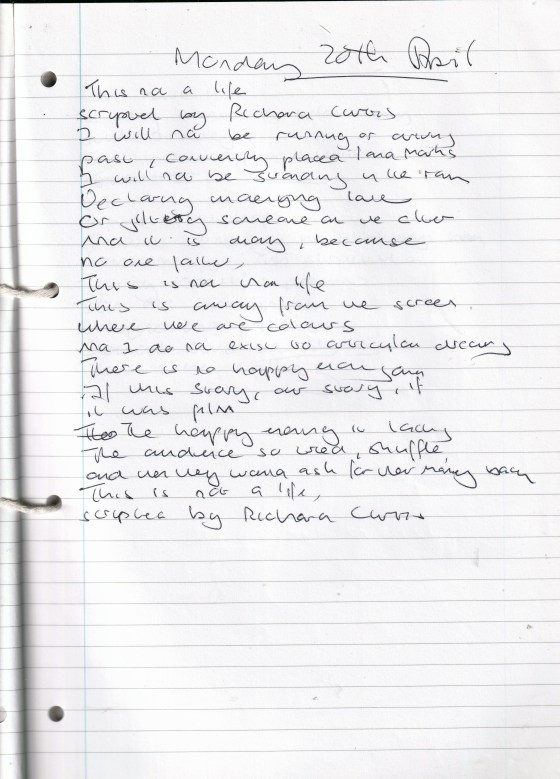 Monday 20th April
This not a life
scripted by Richard Curtis
I will not be running or driving
past, conveniently placed land marks
I will not be standing in the rain
Declaring undying love
Or someone on the
And it is, because
no one
This is not that life
This is away from the screen.
where there are colours
And I do not exist to articulate
There is no happy
If this story, our story, if
it was film
The happy ending is
The audience so, shuffle,
and then they wanna ask for their money back
This is not a life,
scripted by Richard Curtis